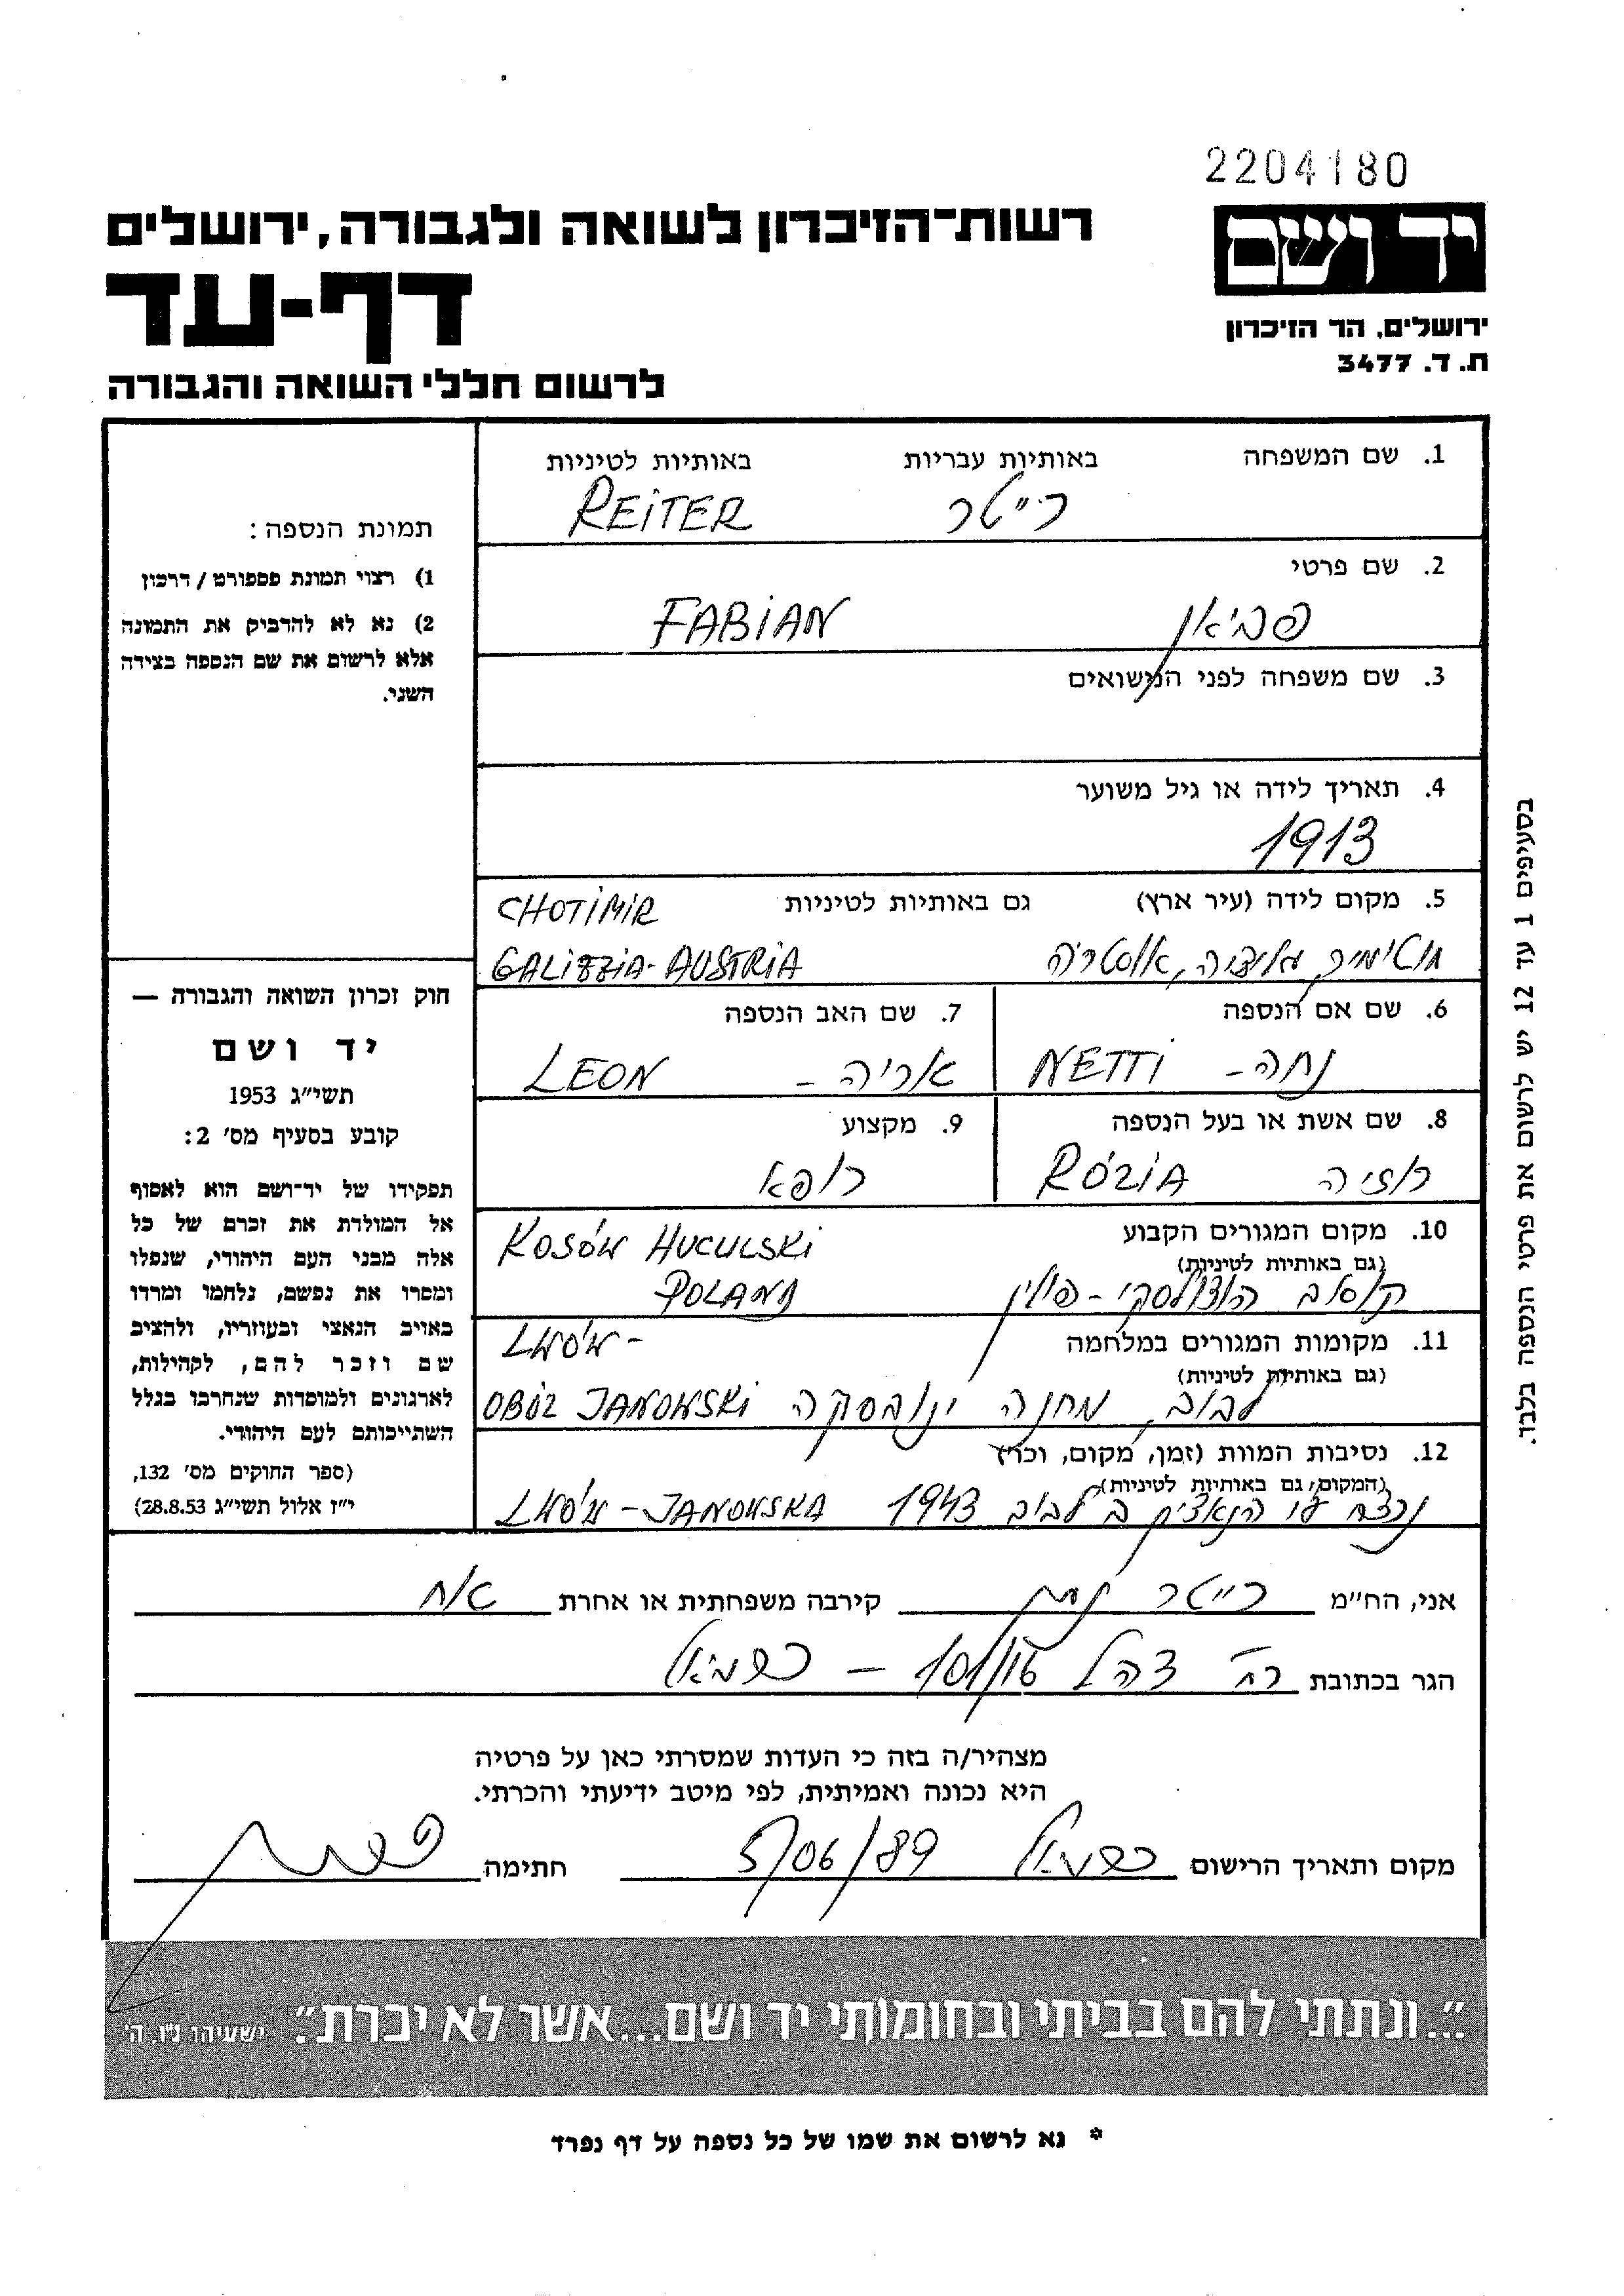 2204180
יד ושם
ירושלים, הר הזיכרון
ת.ד. 3477
רשות-הזיכרון לשואה ולגבורה, ירושלים
דף-עד
לרשום חללי השואה והגבורה
1. שם המשפחה באותיות עבריות באותיות לטיניות
רייטר REiTER
2. שם פרטי
פביאן FABiAN
3. שם משפחה לפני הנישואים
4. תאריך לידה או גיל משוער
1913
5. מקום לידה (עיר ארץ) גם באותיות לטיניות CHOTiMiR
חוטימיר, גליציה, אוסטריה GALiZZiA-AUSTRiA
6. שם אם הנספה
נחה - NETTi
7. שם האב הנספה
אריה - LEON
8. שם אשת או בעל הנספה
רוזיה RÓZiA
9. מקצוע
רופא
10. מקום המגורים הקבוע KOSÓW HUCULSKi
(גם באותיות לטיניות)
קוסוב הוצולסקי - פולין POLAND
11. מקומות המגורים במלחמה LWÓW -
(גם באותיות לטיניות)
לבוב, מחנה ינובסקה OBÓZ JANOWSKi
12. נסיבות המוות (זמן, מקום, וכו')
(המקום, גם באותיות לטיניות)
נרצח ע"י הנאצים ב לבוב 1943 LWÓW - JANOWSKA
תמונת הנספה:
1) רצוי תמונת פספורט / דרכון
2) נא לא להדביק את התמונה
אלא לרשום את שם הנספה בצידה
השני.
חוק זכרון השואה והגבורה —
יד ושם
תשי"ג 1953
קובע בסעיף מס' 2:
תפקידו של יד-ושם הוא לאסוף
אל המולדת את זכרם של כל
אלה מבני העם היהודי, שנפלו
ומסרו את נפשם, נלחמו ומרדו
באויב הנאצי ובעוזריו, ולהציב
שם וזכר להם, לקהילות,
לארגונים ולמוסדות שנחרבו בגלל
השתייכותם לעם היהודי.
(ספר החוקים מס' 132,
י"ז אלול תשי"ג 28.8.53)
בסעיפים 1 עד 12 יש לרשום את פרטי הנספה בלבד.
אני, הח"מ רייטר קירבה משפחתית או אחרת אח
הגר בכתובת רח' צהל 101/ - כרמיאל
מצהיר/ה בזה כי העדות שמסרתי כאן על פרטיה
היא נכונה ואמיתית, לפי מיטב ידיעתי והכרתי.
מקום ותאריך הרישום כרמיאל 5/06/89 חתימה
"...ונתתי להם בביתי ובחומותי יד ושם...אשר לא יכרת". ישעיהו נ"ו, ה'
* נא לרשום את שמו של כל נספה על דף נפרד